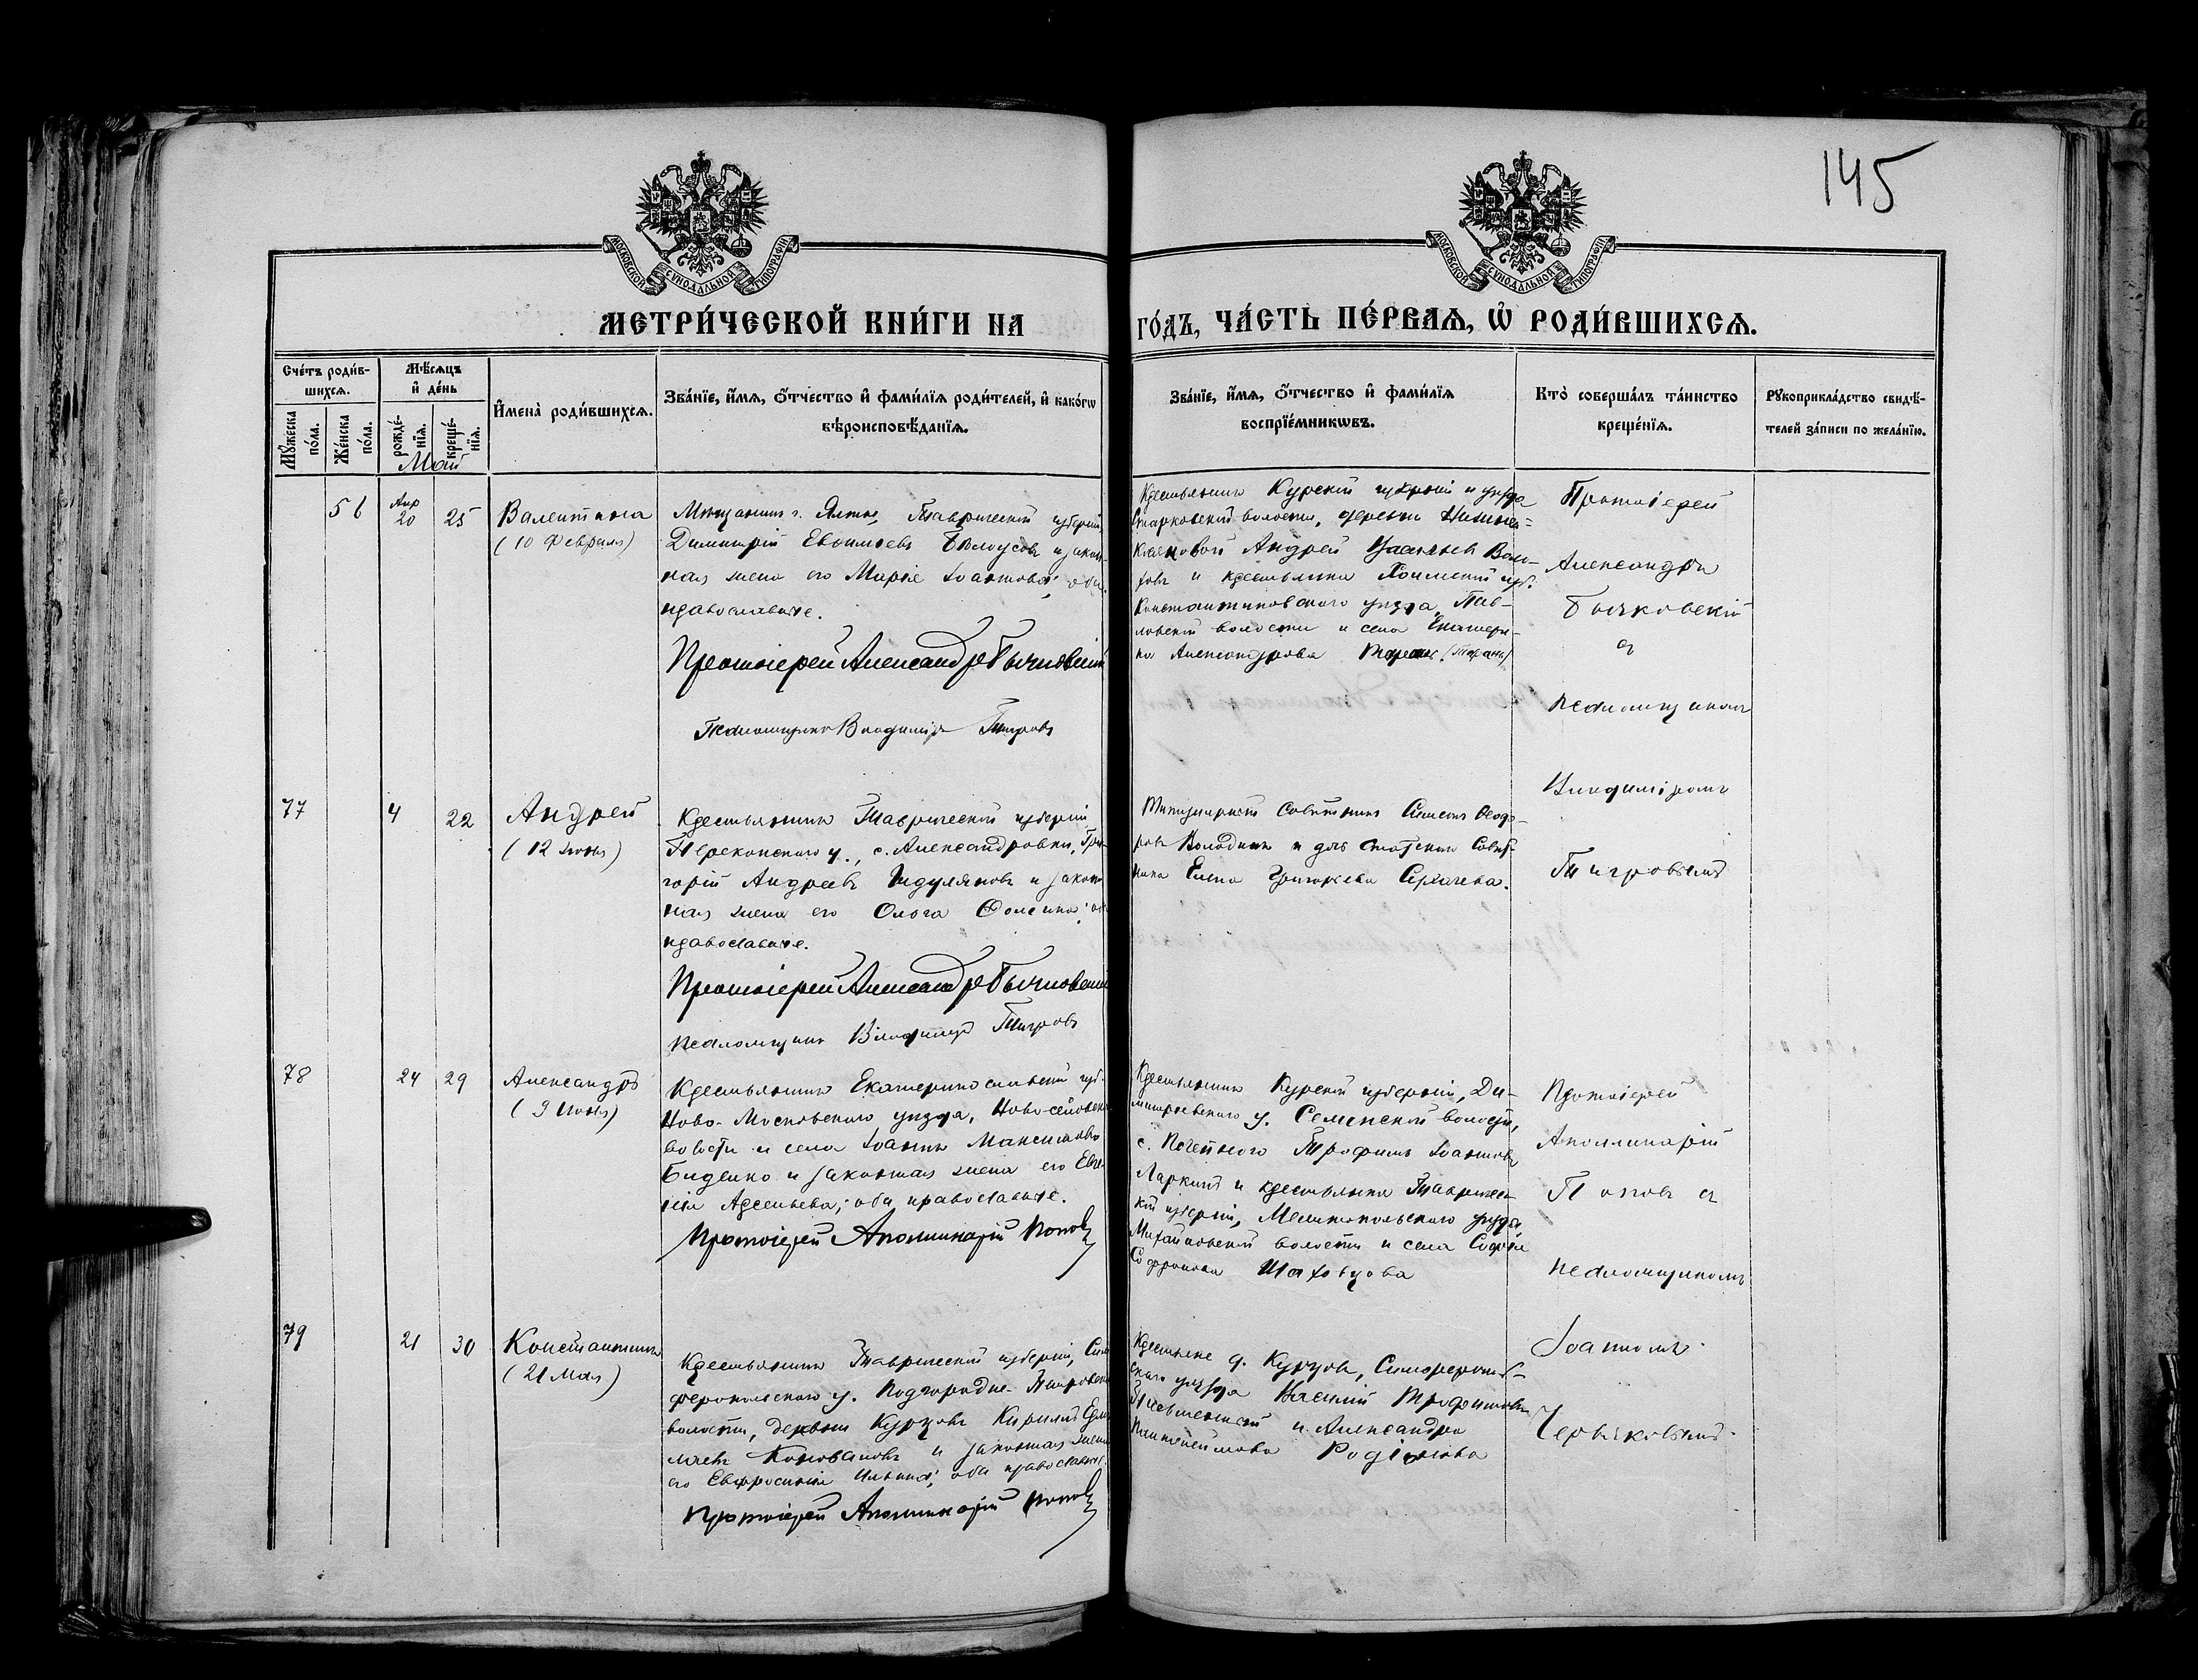 145
МОСКОВСКОЙ СѴНОДАЛЬНОЙ ТИПОГРАФІИ
МОСКОВСКОЙ СѴНОДАЛЬНОЙ ТИПОГРАФІИ
МЕТРИ́ЧЕСКОЙ КНИ́ГИ НА
ГО́ДЪ, ЧА́СТЬ ПЕ́РВАѦ, Ѡ҆ РОДИ́ВШИХСѦ.
Сче́тъ роди́в-
шихсѧ.
Мꙋ́жеска
по́ла.
Же́нска
по́ла.
Мѣ́сѧцъ
и҆ де́нь
рожде́-
нїѧ.
креще́-
нїѧ.
Май
И҆мена̀ роди́вшихсѧ.
Зва́нїе, и҆́мѧ, ѻ҆́тчество и҆ фами́лїѧ роди́телей, и҆ како́гѡ
вѣроисповѣ́данїѧ.
Зва́нїе, и҆́мѧ, ѻ҆́тчество и҆ фами́лїѧ
воспрїе́мникѡвъ.
Кто̀ соверша́лъ та́инство
креще́нїѧ.
Рꙋкоприкла́дство свидѣ́-
телей за́писи по жела́нїю.
56
Апр
20
25
Валентина
(10 Февраля)
Мѣщанинъ г. Ялты, Таврической губерніи
Димитрій Евѳиміевъ Бѣлоусовъ и закон-
ная жена его Марія Іоаннова; оба
православные.
Протоіерей Александръ Бычковскій
Псаломщикъ Владиміръ Тигровъ
Крестьянинъ Курской губерніи и уѣзда
волости, деревни
Андрей
и крестьянка губ.
Константиновскаго уѣзда, Пав-
ловской волости и села Екатери-
на Александрова (Таранъ)
Протоіерей
Александръ
Бычковскій
съ
псаломщикомъ
Владиміромъ
Тигровымъ
77
4
22
Андрей
(12 Іюня)
Крестьянинъ Таврической губерніи
Перекопскаго у., с. Александровки, Гри-
горій Андреевъ и закон-
ная жена его Ольга
православные.
Протоіерей Александръ Бычковскій
псаломщикъ Владиміръ Тигровъ
Титулярный Совѣтникъ Симеонъ Ѳеодо-
ровъ Колодкинъ и дочь Статскаго Совѣт-
ника Елена Григорьева
78
24
29
Александръ
(9 Іюня)
Крестьянинъ Екатеринославской губ.
Ново-Московскаго уѣзда,
волости и села Іоаннъ Максимовъ
Биденко и законная жена его Евге-
нія; оба православные.
Протоіерей Аполлинарій Поповъ
Крестьянинъ Курской губерніи, Ди-
митріевскаго у. волости,
с. Трофимъ Іоанновъ
Ларкинъ и крестьянка Тавричес-
кой губерніи, Мелитопольскаго уѣзда
Михайловской волости и села Софія
Софронова Шаховцова
Протоіерей
Аполлинарій
Поповъ съ
псаломщикомъ
Іоанномъ
79
21
30
Константинъ
(21 Мая)
Крестьянинъ Таврической губерніи, Сим-
феропольскаго у. Подгородне-Петровской
волости, деревни Курцовъ Кириллъ
Коноваловъ и законная жена
его Евфросинія Ильина; оба православные.
Протоіерей Аполлинарій Поповъ
Крестьяне д. Курцовъ, Симферополь-
скаго уѣзда Василій Трофимовъ
и Александра
Пантелеимова Родіонова
Червяковымъ.